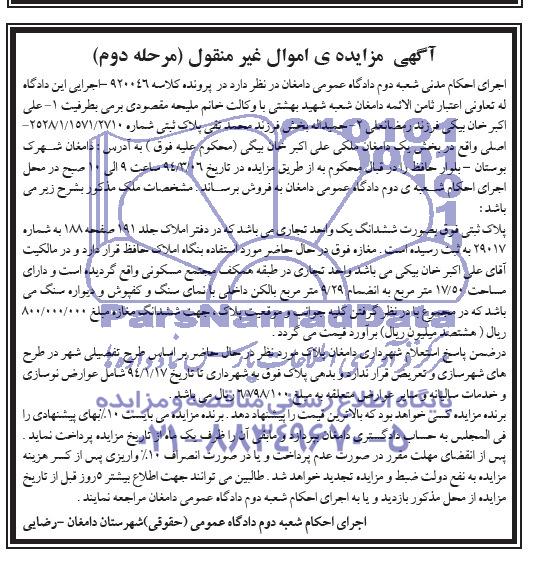 آگهی مزایده ی اموال غیر منقول (مرحله دوم)
اجرای احکام مدنی شعبه دوم دادگاه عمومی دامغان در نظر دارد در پرونده کلاسه ۹۲۰۰۴۶ -اجرایی این دادگاه
له تعاونی اعتبار ثامن الائمه دامغان شعبه شهید بهشتی با وکالت خانم ملیحه مقصودی برمی بطرفیت ۱- علی
اکبر خان بیکی فرزند رمضانعلی ۲- حمیداله بخش فرزند محمد تقی پلاک ثبتی شماره ۲۵۲۸/۱/۱۵۷۱/۲۷۱۰-
اصلی واقع در بخش یک دامغان ملکی علی اکبر خان بیکی (محکوم علیه فوق ) به آدرس : دامغان شهرک
بوستان - بلوار حافظ را در قبال محکوم به از طریق مزایده در تاریخ ۹۴/۳/۰۶ ساعت ۹ الی ۱۰ صبح در محل
اجرای احکام شعبه ی دوم دادگاه عمومی دامغان به فروش برساند . مشخصات ملک مذکور بشرح زیر می
باشد :
پلاک ثبتی فوق بصورت ششدانگ یک واحد تجاری می باشد که در دفتر املاک جلد ۱۹۱ صفحه ۱۸۸ به شماره
۲۹۰۱۷ به ثبت رسیده است . مغازه فوق در حال حاضر مورد استفاده بنگاه املاک حافظ قرار دارد و در مالکیت
آقای علی اکبر خان بیکی می باشد واحد تجاری در طبقه همکف مجتمع مسکونی واقع گردیده است و دارای
مساحت ۱۷/۵۰ متر مربع به انضمام ۹/۲۹ متر مربع بالکن داخلی با نمای سنگ و کفپوش و دیواره سنگ می
باشد که در مجموع با در نظر گرفتن کلیه جوانب و موقعیت پلاک ، جهت ششدانگ مغازه مبلغ ۸۰۰/۰۰۰/۰۰۰
ریال ( هشتصد میلیون ریال) برآورد قیمت می گردد .
درضمن پاسخ استعلام شهرداری دامغان پلاک مورد نظر در حال حاضر بر اساس طرح تفصیلی شهر در طرح
های شهرسازی و تعریض قرار ندارد و بدهی پلاک فوق به شهرداری تا تاریخ ۹۴/۱/۱۷ شامل عوارض نوسازی
و خدمات سالیانه و سایر عوارض متعلقه به مبلغ ۶۷۹۸/۱۰۰ ریال می باشد .
برنده مزایده کسی خواهد بود که بالاترین قیمت را پیشنهاد دهد . برنده مزایده می بایست ۱۰٪ بهای پیشنهادی را
فی المجلس به حساب دادگستری دامغان بپردازد و مابقی آن را ظرف یک ماه از تاریخ مزایده پرداخت نماید .
پس از انقضای مهلت مقرر در صورت عدم پرداخت و یا در صورت انصراف ۱۰٪ واریزی پس از کسر هزینه
مزایده به نفع دولت ضبط و مزایده تجدید خواهد شد . طالبین می توانند جهت اطلاع بیشتر ۵ روز قبل از تاریخ
مزایده از محل مذکور بازدید و یا به اجرای احکام شعبه دوم دادگاه عمومی دامغان مراجعه نمایند .
اجرای احکام شعبه دوم دادگاه عمومی (حقوقی)شهرستان دامغان -رضایی
ParsNamadData
پایگاه اطلاع رسانی مناقصه و مزایده
۰۲۱-۸۸۳۴۹۶۷۰-۵